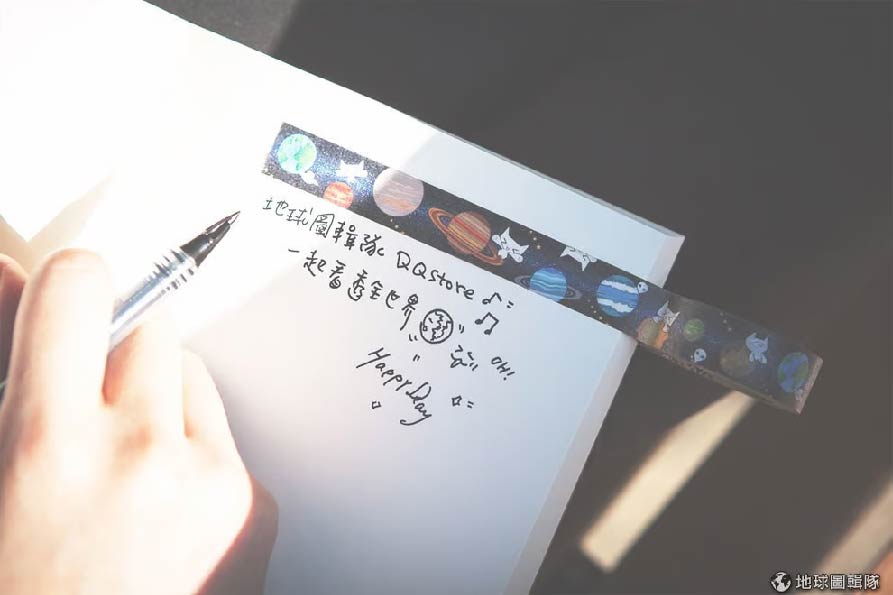 地球圖輯隊 QQstore
一起看透全世界
OH!
Happy Day
地球圖輯隊